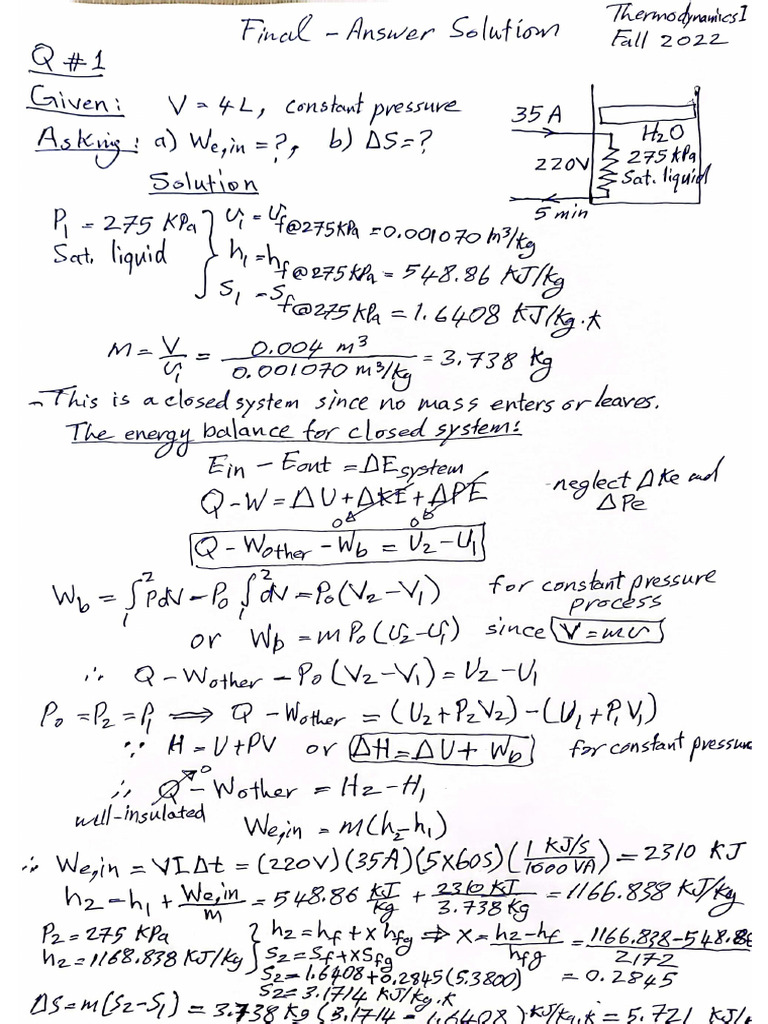 Final - Answer Solution
Thermodynamics I
Fall 2022
Q #1
Given: V = 4L, constant pressure
Asking: a) We,in = ?, b) ΔS = ?
35 A
220V
5 min
H2O
275 kPa
Sat. liquid
Solution
P1 = 275 KPa
Sat. liquid
υ1 = υf@275kPa = 0.001070 m³/kg
h1 = hf@275kPa = 548.86 KJ/kg
S1 = Sf@275kPa = 1.6408 KJ/kg.k
M = V/υ1 = 0.004 m³ / 0.001070 m³/kg = 3.738 kg
- This is a closed system since no mass enters or leaves.
The energy balance for closed system:
Ein - Eout = ΔEsystem
Q - W = ΔU + ΔKE + ΔPE
0 0
- neglect ΔKe and
ΔPe
Q - Wother - Wb = U2 - U1
Wb = ∫₁² PdV - P0 ∫₁² dV = P0(V2 - V1) for constant pressure
process
or Wb = m P0 (υ2 - υ1) since V = mυ
∴ Q - Wother - P0 (V2 - V1) = U2 - U1
P0 = P2 = P1 ⟹ Q - Wother = (U2 + P2V2) - (U1 + P1V1)
∵ H = U + PV or ΔH = ΔU + Wb for constant pressure
∴ Q⁰ - Wother = H2 - H1
well-insulated
We,in = m(h2 - h1)
∴ We,in = VIΔt = (220V)(35A)(5x60S)(1 KJ/s / 1000 VA) = 2310 KJ
h2 = h1 + We,in/m = 548.86 KJ/kg + 2310 KJ / 3.738 kg = 1166.838 KJ/kg
P2 = 275 KPa
h2 = 1168.838 KJ/kg
h2 = hf + x hfg ⇒ x = h2 - hf / hfg = 1166.838 - 548.86 / 2172
= 0.2845
S2 = Sf + xSfg
S2 = 1.6408 + 0.2845 (5.3800)
S2 = 3.1714 KJ/kg.k
ΔS = m(S2 - S1) = 3.738 kg (3.1714 - 1.6408) KJ/kg.k = 5.721 KJ/